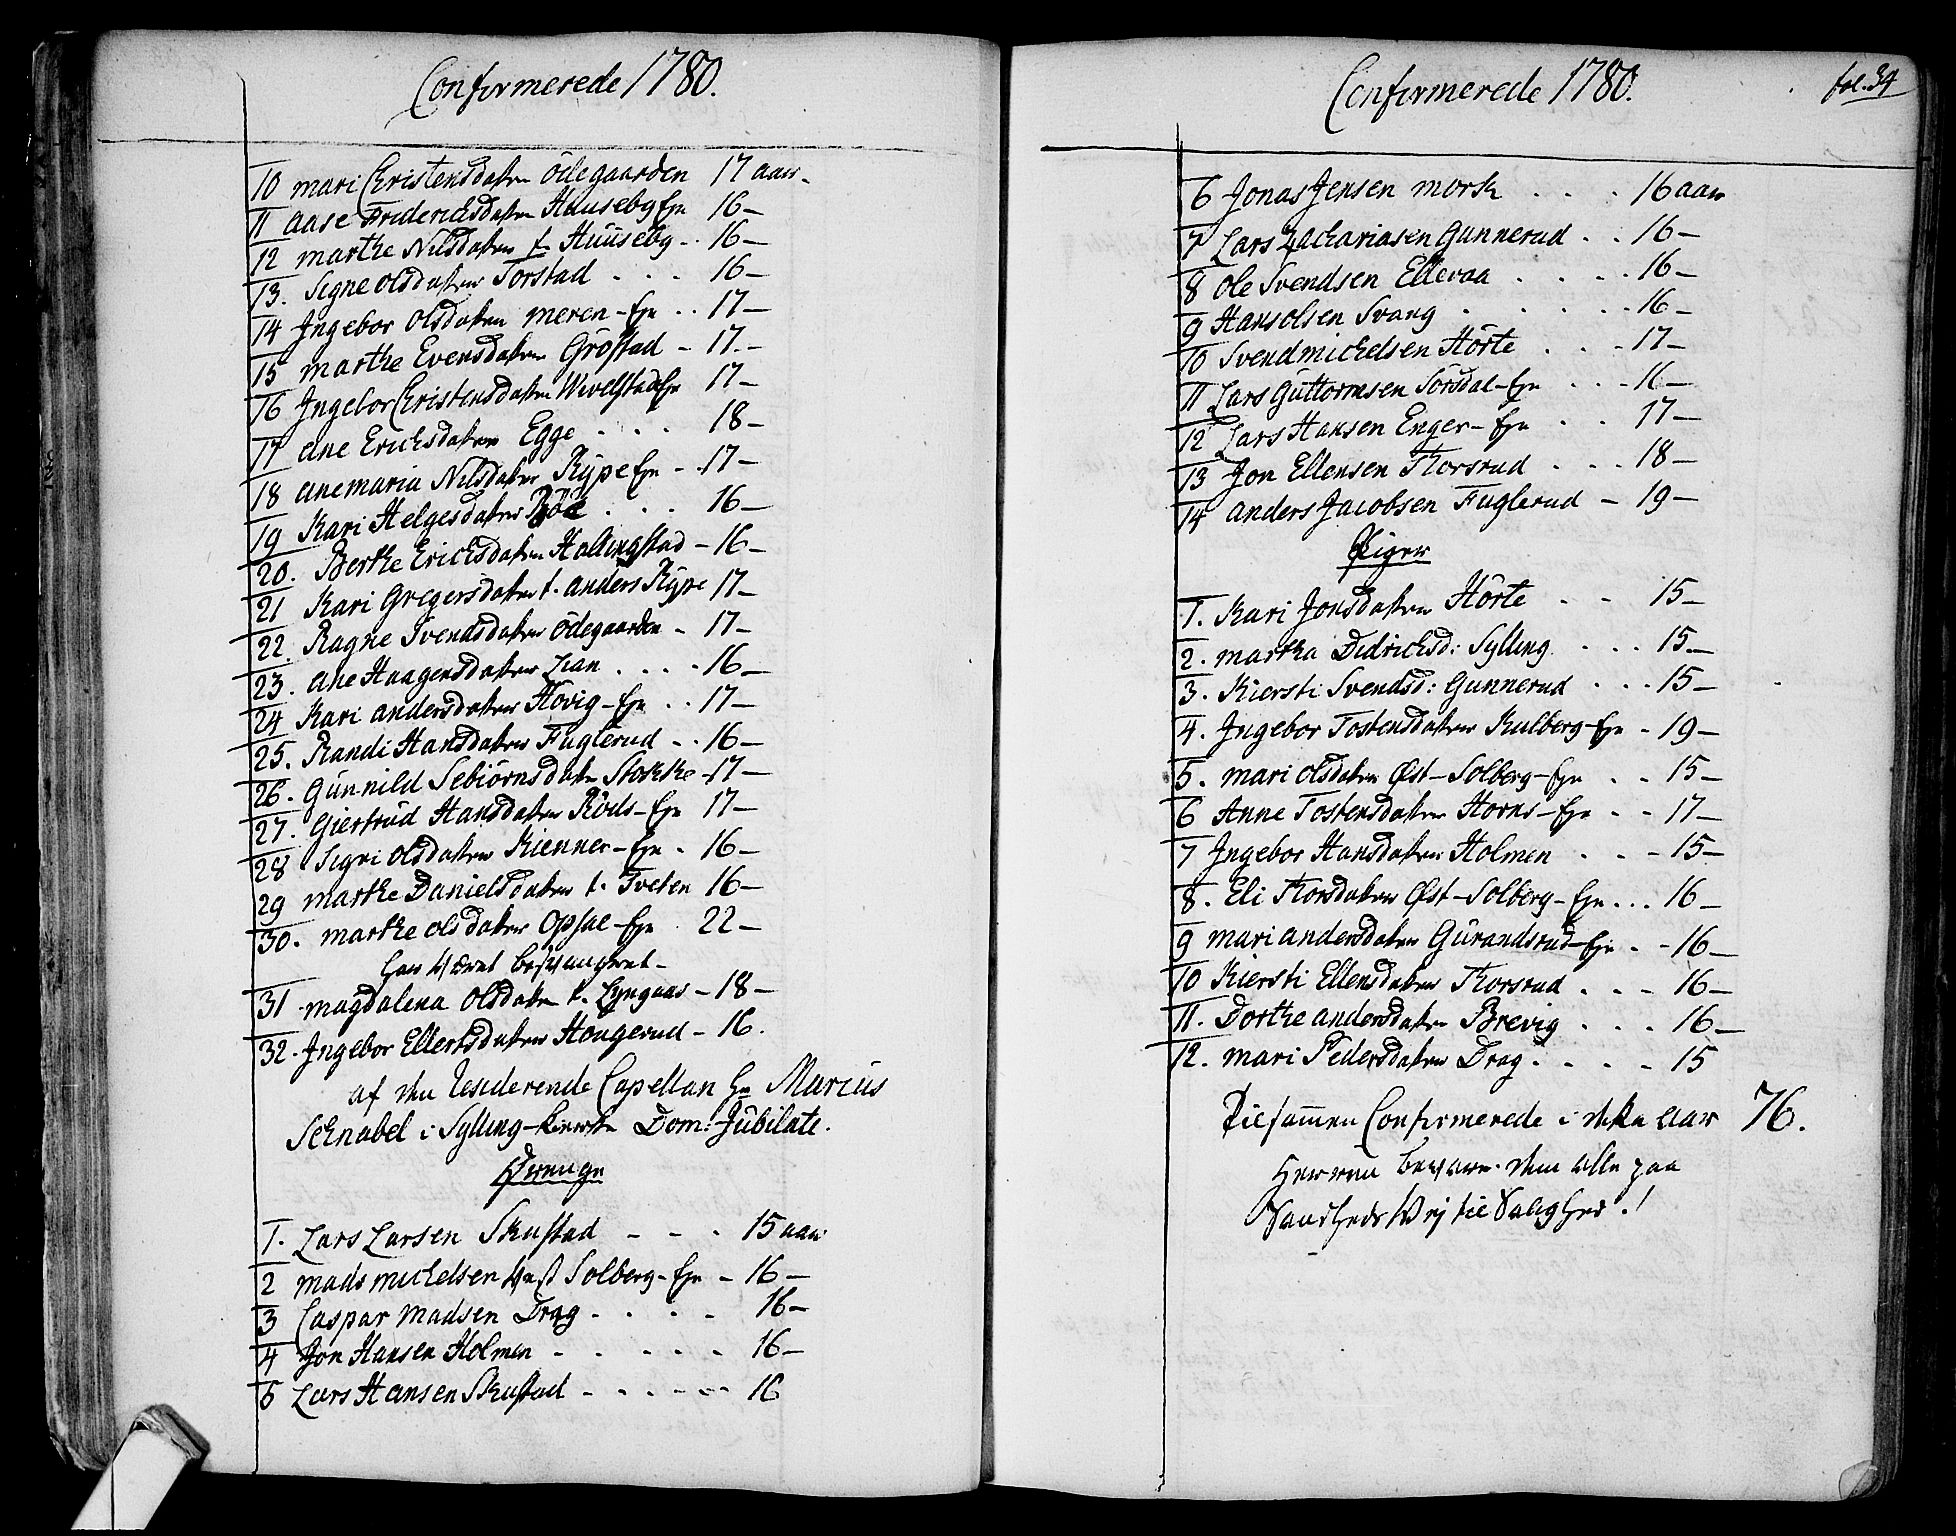 Confirmerede 1780.
10 mari Christensdatter ödegaarden 17 aar.
11 aase Friderichsdatter Hauseby Eje 16 –
12 marthe Nilsdatter t. Huuseby - . 16 –
13. Signe olsdatter Torstad . . . 16 –
14 Jngebor olsdatter meren - Eje . . 17 –
15 marthe Evensdatter Gröstad – 17. –
16 Jngebor Christensdatter Wivelstad Eje 17 –
17 ane Erichsdatter Egge . . . 18 –
18 anemaria Nilsdatter Rype Eje - . 17 –
19 Kari Helgesdatter . . . 16 –
20. Berthe Erichsdatter Hallingstad – 16 –
21 Kari Gregersdatter t. anders Rype 17 –
22. Ragne Svendsdatter ödegaarden – 17 –
23. ane Haagensdatter Lian . . . . 16 –
24 Kari andersdatter Hovig – Eje . . 17 –
25. Randi Hansdatter Fuglerud - . 16 –
26. Gunnild Sebiörnsdatter Stokke - 17 –
27. Giertrud Hansdatter Röds – Eje 17 –
28 Sigri olsdatter Kienner – Eje . 16 –
29 marthe Danielsdatter t. Tveten 16 –
30. marthe olsdatter Opsal – Eje . 22 –
har været besvangret –
31 magdalena olsdatter t. Lyngaas – 18 –
32. Jngebor Ellertsdatter Hougerud – 16.
af den Residerende Capellan Hr Marcus
Schnabel i Sylling – Kircke Dom: Jubilate.
Drenge
1. Lars Larsen Skustad – – . 15 aar
2 mads michelsen Vest Solberg – Eje – 16 –
3 Caspar Madsen Drag . . . . 16 –
4 Jon Hansen Holmen - . . . . 16 –
5 Lars Hansen Skustad - - . - - 16
Confirmerede 1780.
fol. 34
6 Jonas Jensen mork . . . 16 aar
7 Lars Zachariasen Gunnerud . . 16 –
8 ole Svendsen Ellevaa . . . . 16 –
9 Hans olsen Svang . . . . . 16 –
10 Svend michelsen Hörte . . . 17 –
11 Lars Guttormsen Sörsdal – Eje . . . 16 –
12 Lars Hansen Enger – Eje . . 17 –
13 Jon Ellensen Thorsrud . . . 18 –
14 anders Jacobsen Fuglerud – 19 –
Piger
1. Kari Jonsdatter Hörte . - 15 –
2. martha Didrichsd: Sylling . . . 15 –
3. Kiersti Svendsd: Gunnerud . . . 15 –
4. Jngebor Tostensdatter Kulberg – Eje - 19 –
5. mari olsdatter Øst – Solberg – Eje . . 15 –
6 Anne Tostensdatter Horns – Eje . - 17 –
7 Jngebor Hansdatter Holmen . . - 15 –
8. Eli Thorsdatter Øst – Solberg – Eje . . . 16 –
9 mari andersdatter Gurandsrud – Eje . - 16 –
10 Kiersti Ellensdatter Thorsrud . . - 16 –
11. Dorthe andersdatter Brevig . . . 16 –
12. mari Pedersdatter Drag . . . . - 15
Tilsammen Confirmerede i dette Aar 76.
Herren bevare dem alle paa
Sandheds Vej til Salighed !